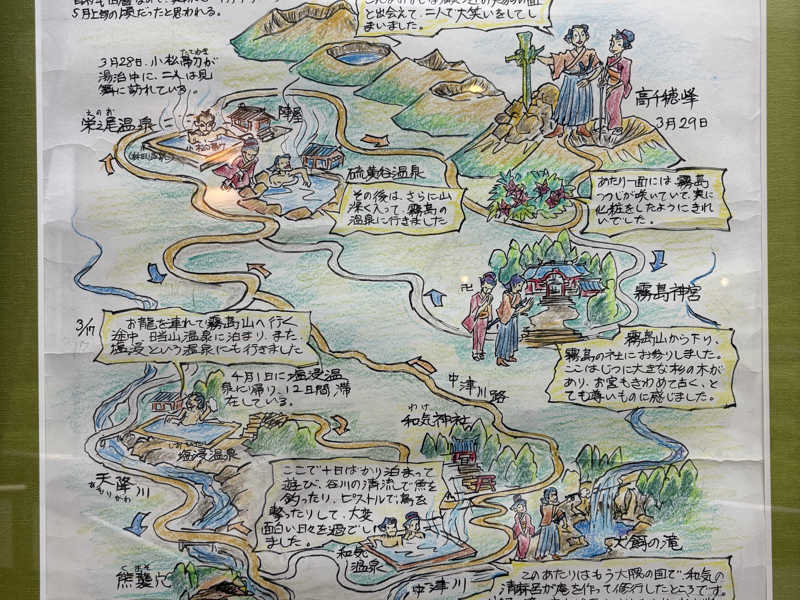 5月上旬の頃だったと思われる。
と出会えて、二人で大笑いをしてし
まいました。
3月28日、小松帯刀が
たてわき
湯泊中に、二人は見
舞に訪れている。
えのお
栄之尾温泉
陣屋
硫黄谷温泉
その後は、さらに山
深く入って、霧島の
温泉に行きました
高千穂峰
3月29日
あたり一面には、霧島
つつじが咲いていて、実に
化粧をしたようにきれ
いでした。
霧島神宮
3/17
お龍を連れて霧島山へ行く
途中、日当山温泉に泊まり、また、
塩浸という温泉にも行きました
霧島山から下り、
霧島の社にお参りしました。
ここはじつに大きな杉の木が
あり、お宮もきわめて古く、と
ても尊いものに感じました。
4月1日に塩浸温
泉に帰り、12日間、滞
在している。
中津川路
わけ
和気神社
しおひたし
塩浸温泉
天降川
あもりがわ
ここで十日ばかり泊まって
遊び、谷川の清流で魚を
釣ったり、ピストルで鳥を
撃ったりして、大変
面白い日々を過ごし
ました。
和気
温泉
犬飼の滝
熊襲穴
くまそ
中津川
このあたりはもう大隅の国で、和気の
清麻呂が庵を作って修行したところです。